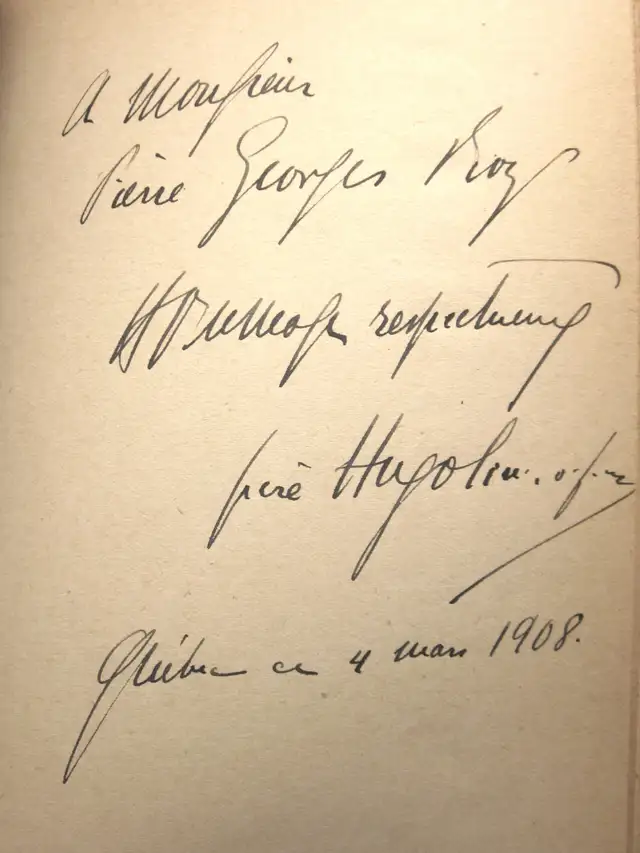 A Monsieur
Pierre Georges Roy
Hommage respectueux
frère Hugolin. o.f.m.
Québec ce 4 mars 1908.